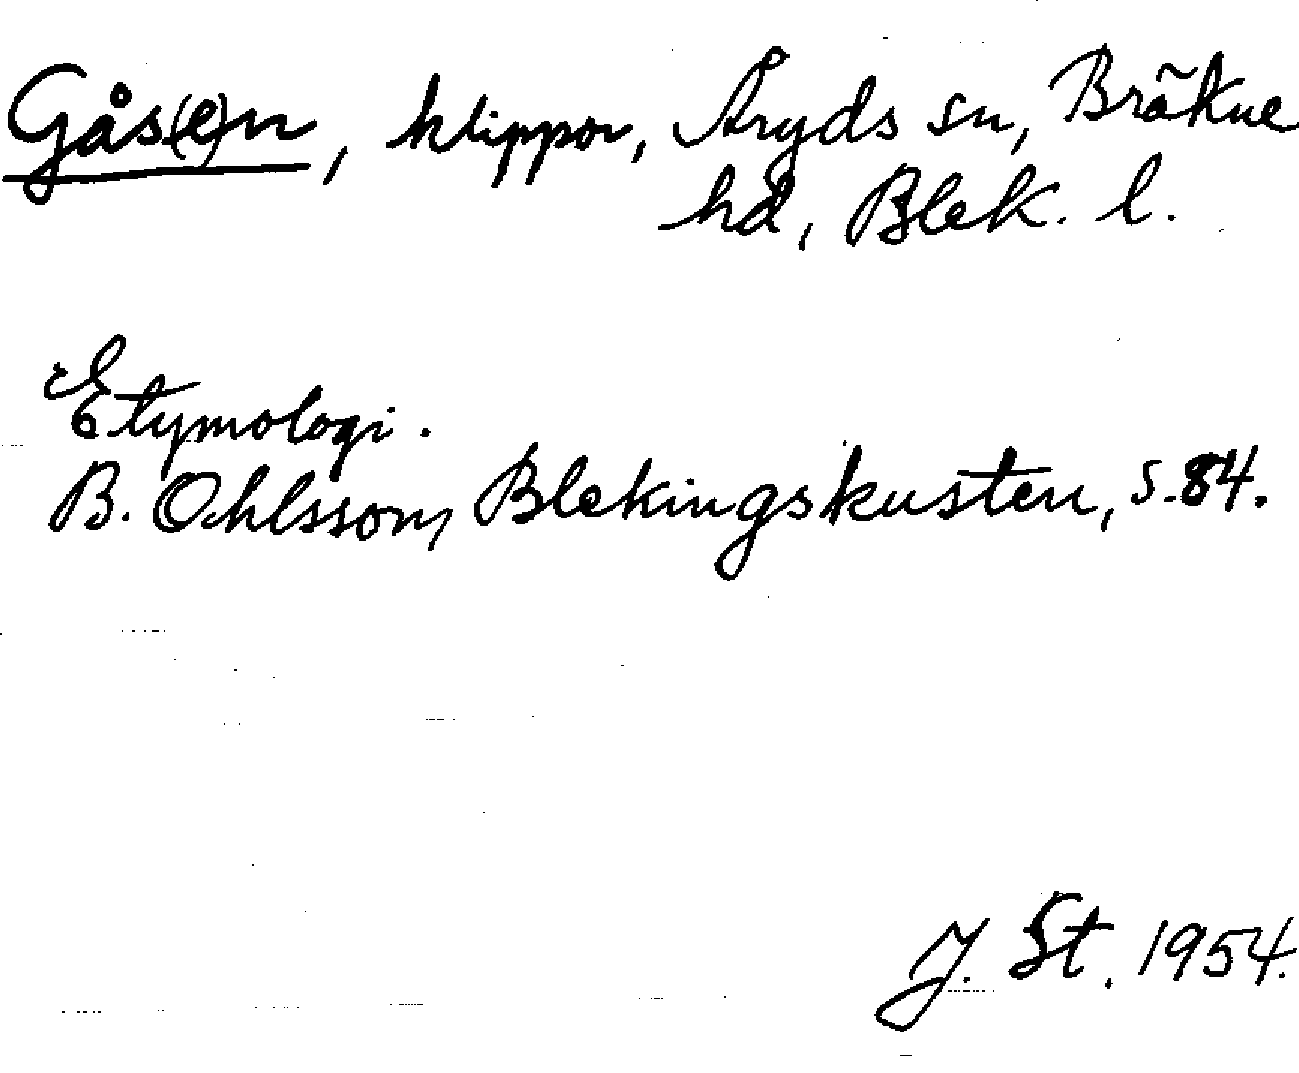 Gås(e)n, klippor, Åryds sn, Bräkne
hd, Blek. l.
Etymologi.
B. Ohlsson, Blekingskusten, s. 84.
J. St. 1954.